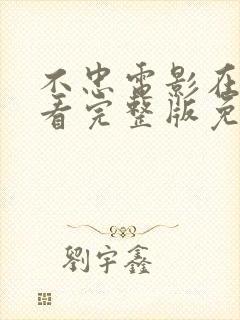 不忠电影在
看完整版免
劉宇鑫